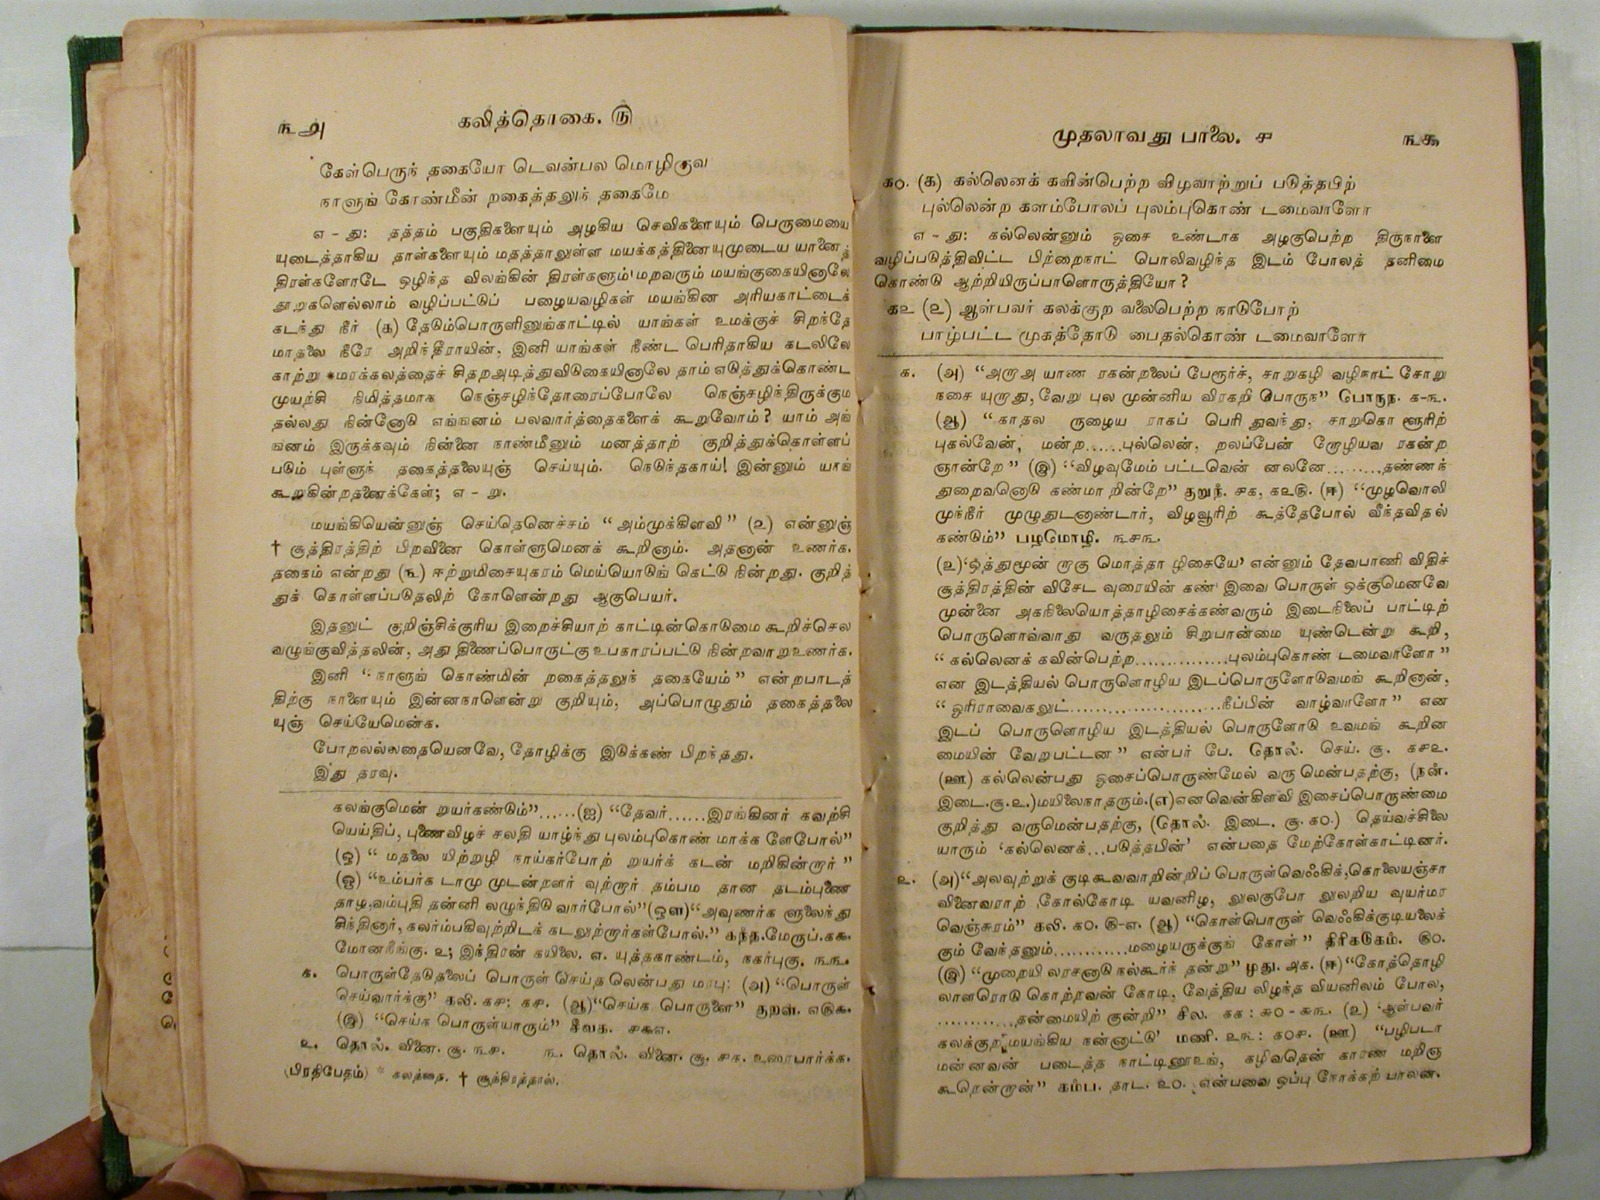 ௩௮
கலித்தொகை. ௫
கேள்பெருந் தகையோ டெவன்பல மொழிகுவ
நாளுங் கோண்மீன் றகைத்தலுந் தகைமே
எ - து: தத்தம் பகுதிகளையும் அழகிய செவிகளையும் பெருமையை
யுடைத்தாகிய தாள்களையும் மதத்தாலுள்ள மயக்கத்தினையுமுடைய யானைத்
திரள்களோடே ஒழிந்த விலங்கின் திரள்களும் மறவரும் மயங்குகையினாலே
தூறுகளெல்லாம் வழிப்பட்டுப் பழையவழிகள் மயங்கின அரியகாட்டைக்
கடந்து நீர் (௧) தேடும்பொருளினுங்காட்டில் யாங்கள் உமக்குச் சிறந்தே
மாதலை நீரே அறிந்தீராயின், இனி யாங்கள் நீண்ட பெரிதாகிய கடலிலே
காற்று *மரக்கலத்தைச் சிதறஅடித்துவிடுகையினாலே தாம் எடுத்துக்கொண்ட
முயற்சி நிமித்தமாக நெஞ்சழிந்தோரைப்போலே நெஞ்சழிந்திருக்கும
தல்லது நின்னோடு எங்ஙனம் பலவார்த்தைகளைக் கூறுவோம்? யாம் அங்
ஙனம் இருக்கவும் நின்னை நாண்மீனும் மனத்தாற் குறித்துக்கொள்ளப்
படும் புள்ளுந் தகைத்தலையுஞ் செய்யும். நெடுந்தகாய்! இன்னும் யாங்
கூறுகின்றதனைக்கேள்; எ - று.
மயங்கியென்னுஞ் செய்தெனெச்சம் “அம்முக்கிளவி” (௨) என்னுஞ்
† சூத்திரத்திற் பிறவினை கொள்ளுமெனக் கூறினாம். அதனான் உணர்க.
தகைம் என்றது (௩) ஈற்றுமிசையுகரம் மெய்யொடுங் கெட்டு நின்றது. குறித்
துக் கொள்ளப்படுதலிற் கோளென்றது ஆகுபெயர்.
இதனுட் குறிஞ்சிக்குரிய இறைச்சியாற் காட்டின்கொடுமை கூறிச்செல
வழுங்குவித்தலின், அது திணைப்பொருட்கு உபகாரப்பட்டு நின்றவாறுஉணர்க.
இனி “நாளுங் கொண்மின் றகைத்தலுந் தகையேம்” என்றபாடத்
திற்கு நாளையும் இன்னநாளென்று குறியும், அப்பொழுதும் தகைத்தலை
யுஞ் செய்யேமென்க.
போறலல்லதையெனவே, தோழிக்கு இடுக்கண் பிறந்தது.
இது தரவு.
கலங்குமென் றுயர்கண்டும்”......(ஐ) “தேவர்......இரங்கினர் கவற்சி
யெய்திப், புணைவிழச் சலதி யாழ்ந்து புலம்புகொண் மாக்க ளேபோல்”
(ஒ) “ மதலை யிற்றுழி நாய்கர்போற் றுயர்க் கடன் மறிகின்றார் ”
(ஓ) “உம்பர்க டாமு முடன்றளர் வுற்றார் தம்பம தான தடம்புணை
தாழ,வம்புதி தன்னி லழுந்திடு வார்போல்”(ஔ)“அவுணர்க ளுலைந்து
சிந்தினார், கலர்ம்பகிவுற்றிடக் கடலுற்றார்கள்போல்.” கந்த.மேருப்.௧௬.
மோனநீங்கு. ௨; இந்திரன் கயிலை. எ. யுத்தகாண்டம், நகர்புகு. ௩௩.
௧. பொருள்தேடுதலைப் பொருள் செய்த லென்பது மரபு: (அ) “பொருள்
செய்வார்க்கு” கலி. ௧௪: ௧௪. (ஆ)“செய்க பொருளை” குறள். ௭௫௯.
(இ) “செய்க பொருள்யாரும்” சீவக. ௪௯௭.
௨. தொல். வினை. சூ. ௩௪. ௩. தொல். வினை. சூ. ௪௧. உரைபார்க்க.
(பிரதிபேதம்) * கலத்தை. † சூத்திரத்தால்.
முதலாவது பாலை. ௪
௩௯
௧௦. (௧) கல்லெனக் கவின்பெற்ற விழவாற்றுப் படுத்தபிற்
புல்லென்ற களம்போலப் புலம்புகொண் டமைவாளோ
எ - து: கல்லென்னும் ஓசை உண்டாக அழகுபெற்ற திருநாளை
வழிப்படுத்திவிட்ட பிற்றைநாட் பொலிவழிந்த இடம் போலத் தனிமை
கொண்டு ஆற்றியிருப்பாளொருத்தியோ?
௧௨ (௨) ஆள்பவர் கலக்குற வலைபெற்ற நாடுபோற்
பாழ்பட்ட முகத்தோடு பைதல்கொண் டமைவாளோ
௧. (அ) “அறாஅ யாண ரகன்றலைப் பேரூர்ச், சாறுகழி வழிநாட் சோறு
நசை யுறாது,வேறு புல முன்னிய விரகறி பொருந” பொருந. ௧-௩.
(ஆ) “காதல ருழைய ராகப் பெரி துவந்து, சாறுகொ ளூரிற்
புகல்வேன், மன்ற......புல்லென், றலப்பேன் றோழியவ ரகன்ற
ஞான்றே” (இ) “விழவுமேம் பட்டவென் னலனே.........தண்ணந்
துறைவனொடு கண்மா றின்றே” குறுந். ௪௧, ௧௨௫. (ஈ) “முழவொலி
முந்நீர் முழுதுடனாண்டார், விழவூரிற் கூத்தேபோல் வீந்தவிதல்
கண்டும்” பழமொழி. ௩௪௩.
(உ)‘ஒத்துமூன் றாகு மொத்தா ழிசையே’ என்னும் தேவபாணி விதிச்
சூத்திரத்தின் விசேட வுரையின் கண் இவை பொருள் ஒக்குமெனவே
முன்னை அகநிலையொத்தாழிசைக்கண்வரும் இடைநிலைப் பாட்டிற்
பொருளொவ்வாது வருதலும் சிறுபான்மை யுண்டென்று கூறி,
“கல்லெனக் கவின்பெற்ற...............புலம்புகொண் டமைவாளோ”
என இடத்தியல் பொருளொழிய இடப்பொருளோடுவமங் கூறினான்,
“ஒரிராவைகலுட்.........................நீப்பின் வாழ்வாளோ” என
இடப் பொருளொழிய இடத்தியல் பொருளோடு உவமங் கூறின
மையின் வேறுபட்டன” என்பர் பே. தொல். செய். சூ. ௧௪௨.
(ஊ) கல்லென்பது ஓசைப்பொருண்மேல் வரு மென்பதற்கு, (நன்.
இடை.சூ.௨.)மயிலைநாதரும்.(எ)எனவென்கிளவி இசைப்பொருண்மை
குறித்து வருமென்பதற்கு, (தொல். இடை. சூ. ௧௦.) தெய்வச்சிலை
யாரும் ‘கல்லெனக்...படுத்தபின்’ என்பதை மேற்கோள்காட்டினர்.
௨. (அ)“அலவுற்றுக் குடிகூவவாறின்றிப் பொருள்வெஃகிக்,கொலையஞ்சா
வினைவராற் கோல்கோடி யவனிழ, லுலகுபோ லுலறிய வுயர்மர
வெஞ்சுரம்” கலி. ௧௦. ௫-௭. (ஆ) “கொள்பொருள் வெஃகிக்குடியலைக்
கும் வேந்தனும்............மழையருக்குங் கோள்” திரிகடுகம். ௫௦.
(இ) “முறையி லரசனாடு நல்கூர்ந் தன்று” முது. ௮௧. (ஈ)“கோத்தொழி
லாளரொடு கொற்றவன் கோடி, வேத்திய லிழந்த வியனிலம் போல,
............தன்மையிற் குன்றி” சில. ௧௧: ௬௦ - ௬௩. (உ) ‘ஆள்பவர்
கலக்குறமயங்கிய நன்னாட்டு’ மணி. ௨௩: ௧௦௪. (ஊ) “பழிபடா
மன்னவன் படைத்த நாட்டினூஉங், கழிவதென் காரண மறிஞ
கூரென்றான்” கம்ப. தாட. ௨௦. என்பவை ஒப்பு நோக்கற் பாலன.